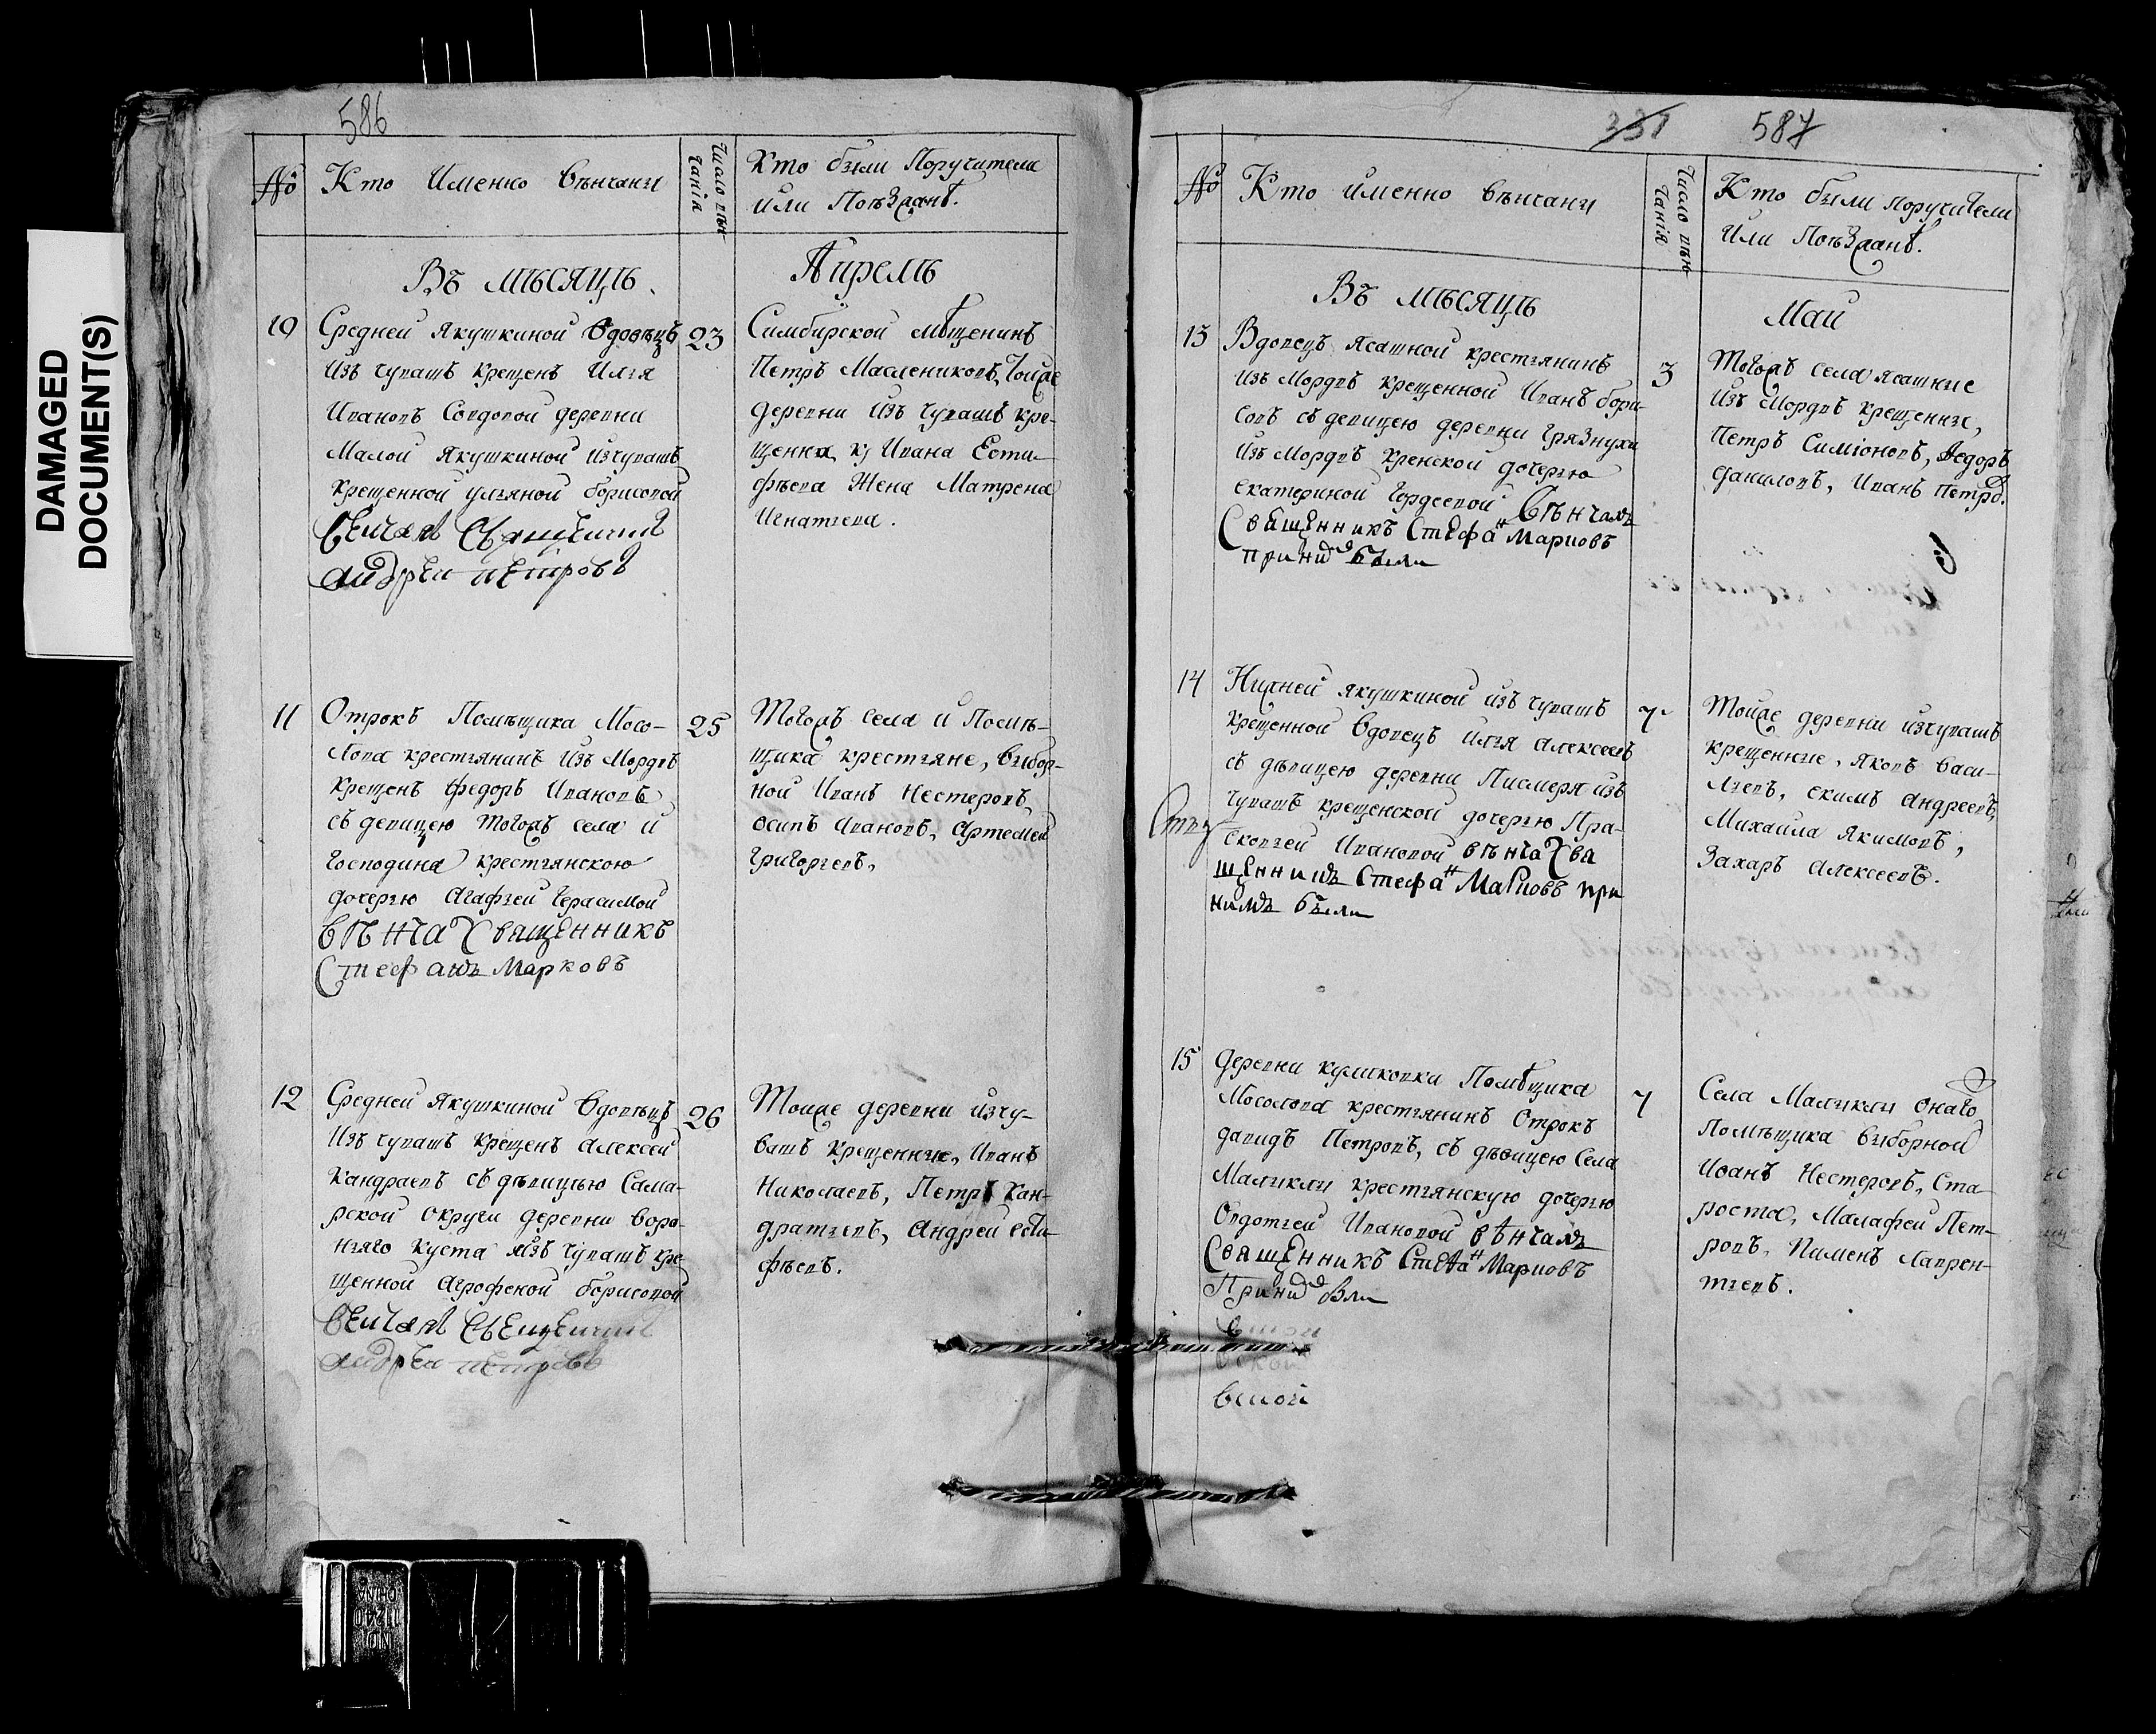 DAMAGED
DOCUMENT(S)
586
№
Кто Именно венчаны
Число вен-
чанiя
Кто были Поручители
или Поѣзжанѣ.
Въ мѣсяцѣ
Апрелѣ
10
Средней Якушкиной вдовецъ
Изъ чувашъ крещенъ Илья
Ивановъ Солдовой деревни
Малой Якушкиной изчувашъ
крещенной ульяной борисовой
венчал Священникъ
андрѣи петровъ
23
Симбирской мѣщенинъ
Петръ Маслениковъ, тойже
деревни изъ чувашъ кре-
щенна Ивана Ести-
фѣева Жена Матрена
Игнатьева.
11
Отрокъ Помѣщика Мосо-
лова крестьянинъ Изъ Мордвъ
крещенъ федоръ Ивановъ,
съ девицею тогожъ села и
господина крестьянскою
дочерью Агафьей Герасимой
вѣнчалъ священникъ
Стефанъ Марковъ
25
Тогожъ села и Помѣ-
щика крестьяне, выбор-
ной Иванъ Нестеровъ,
осипъ Ивановъ, Артемей
Григорьевъ,
12
Средней Якушкиной вдовецъ
Изъ чувашъ крещенъ Алексей
Кандраевъ съ дѣвицью Сама-
рской округи деревни вора-
ньяго Куста изъ чувашъ кре-
щенной Агрофеной борисовой
венчал Свещенник
андрѣи петровъ
26
Тойже деревни изчу-
вашъ крещенные, Иванъ
Николаевъ, Петръ Кан-
дратьевъ, Андрей ести-
фѣевъ.
331 587
№
Кто именно вѣнчаны
Число вѣн-
чанiя
Кто были поручители
Или Поѣзжанѣ.
Въ мѣсяцѣ
Маи
13
Вдовецъ Ясашной крестьянинъ
изъ Мордвъ крещенной Иванъ бори-
совъ съ девицею деревни грязнухи
изъ Мордвъ крещской дочерью
екатериной Гордеевой Вѣнчалъ
Священникъ Стефанъ Марковъ
при нихъ были
3
Тогожъ села ясашные
Изъ Мордвъ крещенные,
Петръ Симiоновъ, Федоръ
даниловъ, Иванъ Петров.
14
Нижней якушкиной изъ чувашъ
крещенной вдовецъ илья алексеевъ
съ дѣвицею деревни Писмеря изъ
чувашъ крещенской дочерью Пра-
сковьей Ивановой вѣнчалъ свя
щенникъ Стефанъ Марковъ при
нимъ были
7
Тойже деревни изчувашъ
крещенные, Яковъ Васи-
льевъ, екимъ андреевъ,
Михаила Якимовъ,
Захаръ алексеевъ.
15
деревни куликовки Помѣщика
Мосолова крестьянинъ Отрокъ
давидъ Петровъ, съ дѣвицею Села
Маликлы крестьянскую дочерью
Овдотьей Ивановой вѣнчалъ
Священникъ Стефанъ Марковъ
При них были
7
Села Маликлы онаго
Помѣщика выборной
Иванъ Нестеровъ, Ста-
роста, Малафеи Пет-
ровъ, Пименъ Лаврен-
тьевъ.